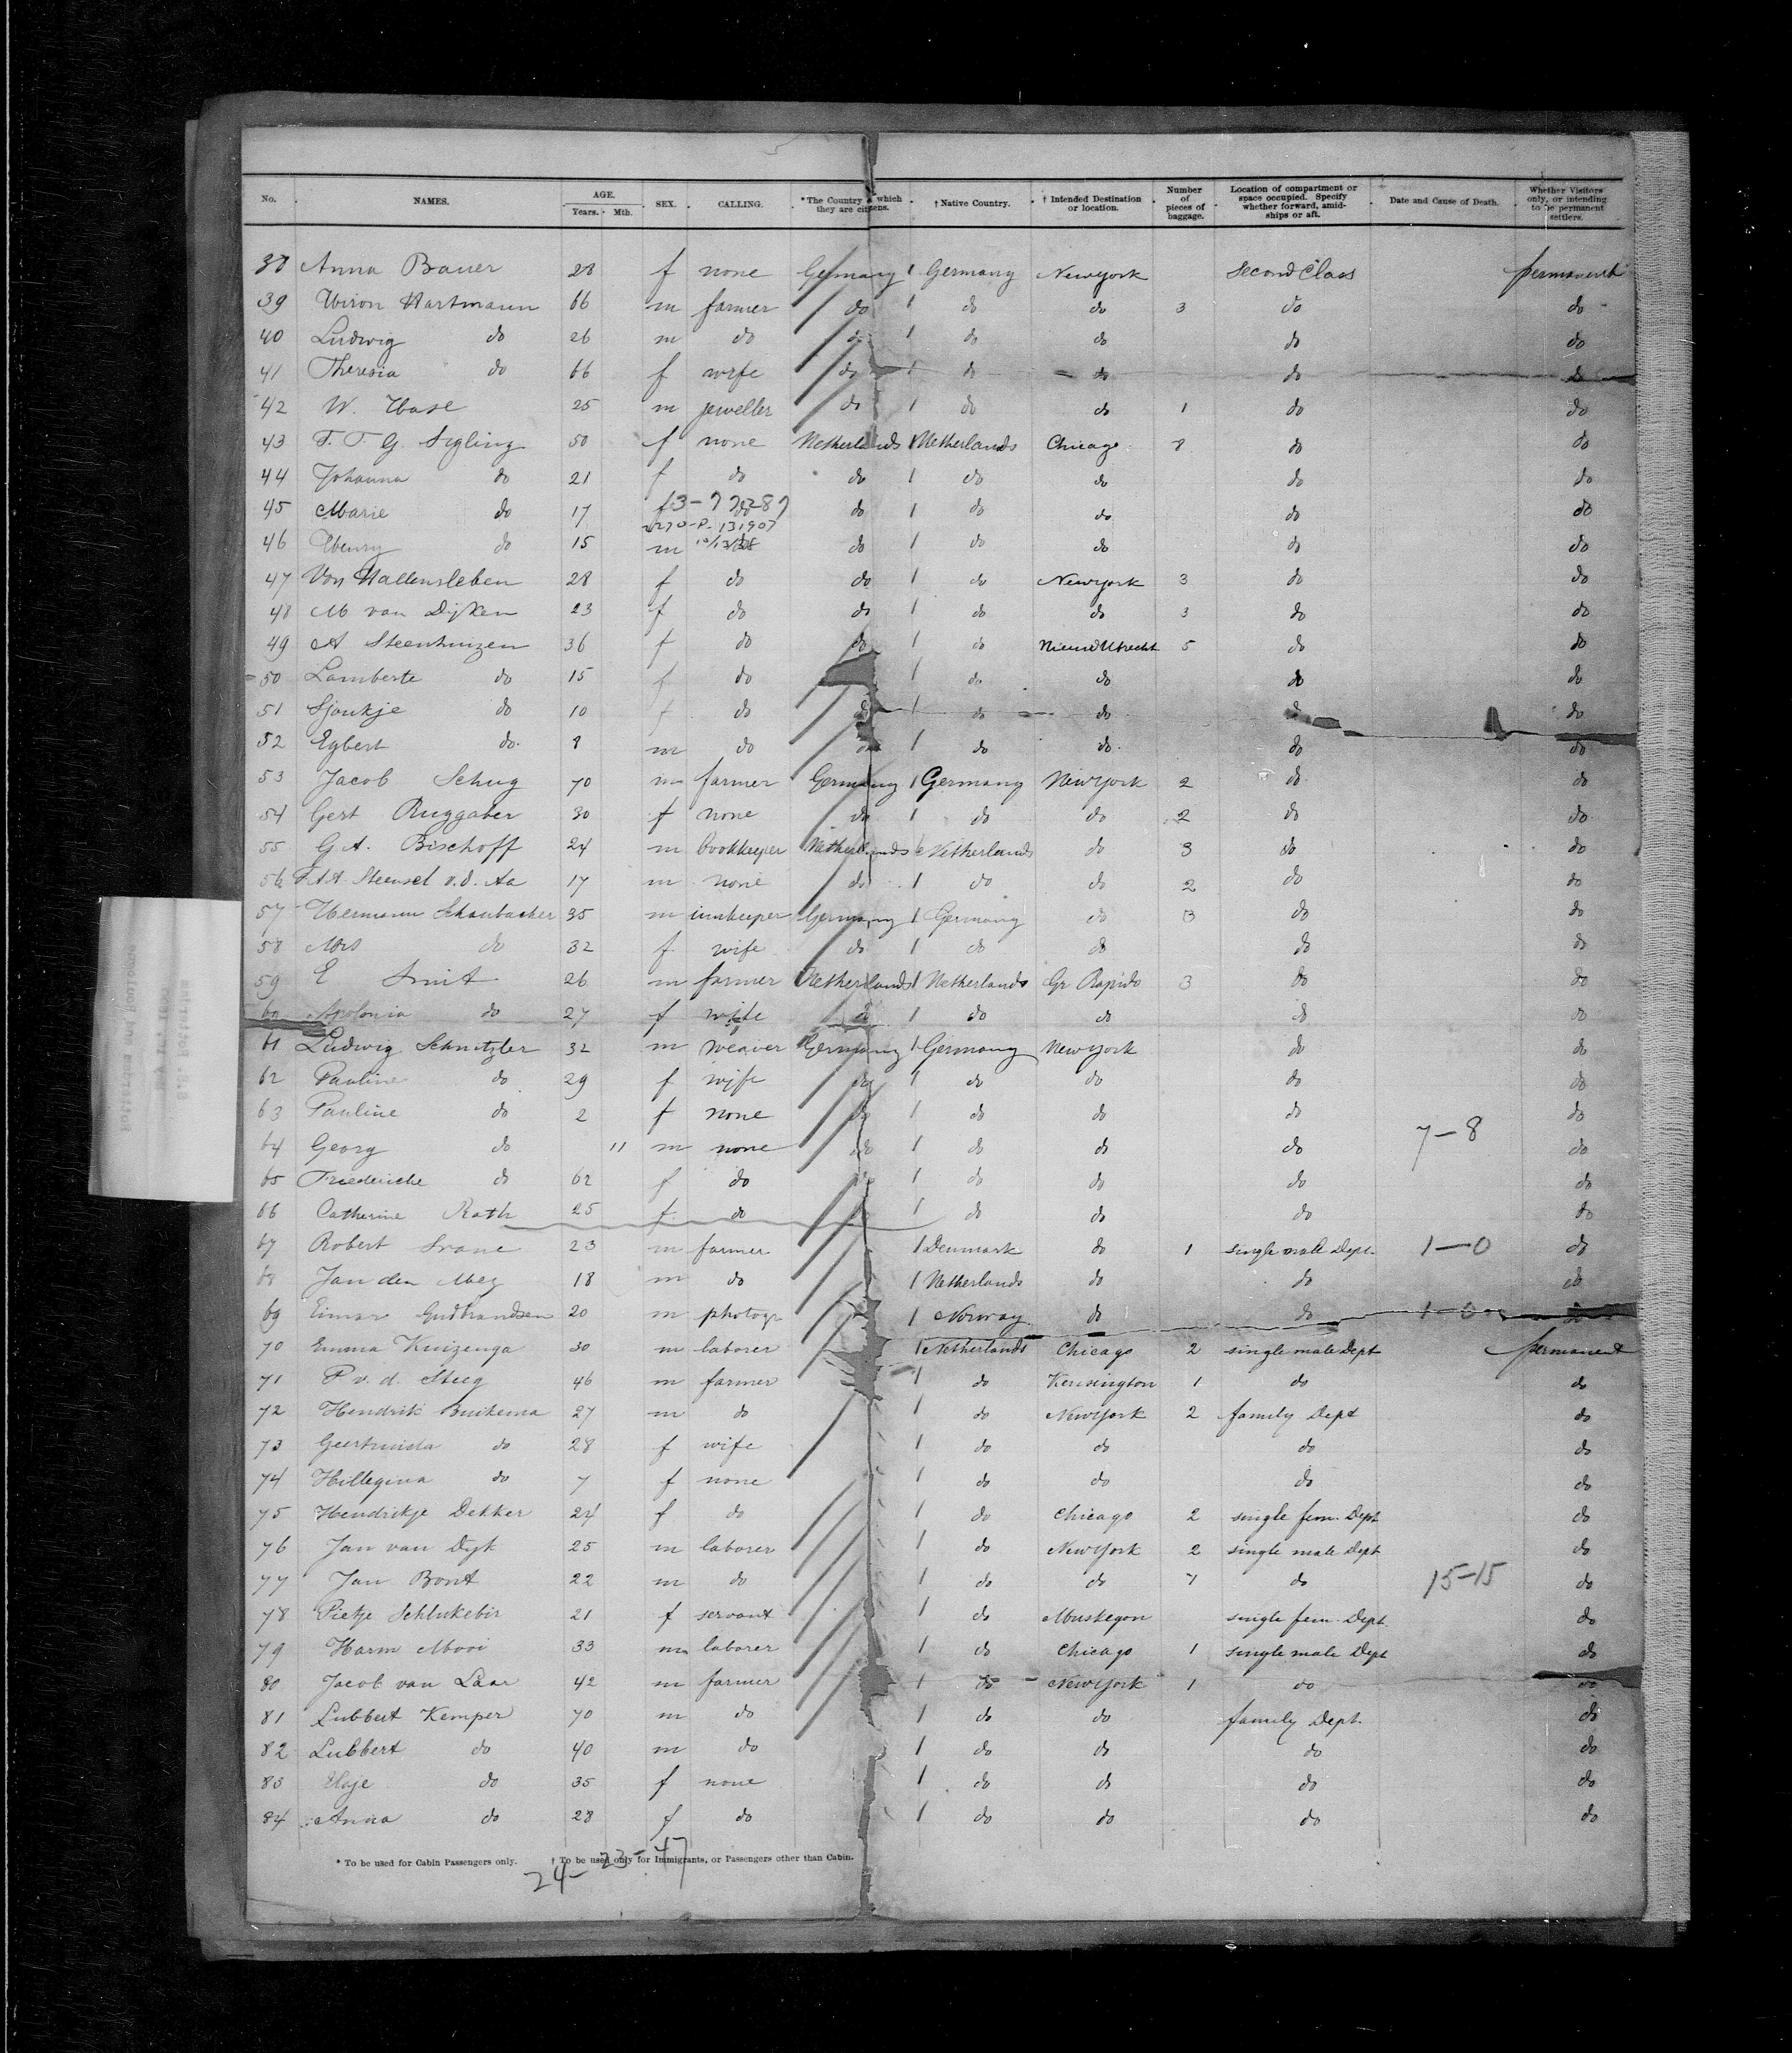 No. NAMES. AGE. Years. Mth. SEX. CALLING. *The Country of which they are citizens. †Native Country. †Intended Destination or location. Number of pieces of baggage. Location of compartment or space occupied. Specify whether forward, amidships or aft. Date and Cause of Death. Whether Visitors only, or intending to be permanent settlers.
38 Anna Bauer 28 f none Germany 1 Germany New york Second Class permanent
39 Hartmann 66 m farmer do 1 do do 3 do do
40 Ludwig do 26 m do do 1 do do do do
41 Theresia do 66 f wife do 1 do do do do
42 W. Hase 25 m jeweller do 1 do do 1 do do
43 F. T. G. Sygling 50 f none Netherlands 1 Netherlands Chicago 8 do do
44 Johanna do 21 f do do 1 do do do do
45 Marie do 17 do 1 do do do do
46 Henry do 15 m do 1 do do do do
47 Von Hallensleben 28 f do do 1 do New york 3 do do
48 M van Dijken 23 f do do 1 do do 3 do do
49 A Steenhuizen 36 f do do 1 do Nieuw Utrecht 5 do do
50 Lamberte do 15 f do 1 do do do do
51 Sjoukje do 10 f do do 1 do do do do
52 Egbert do. 8 m do do 1 do do. do do
53 Jacob Schug 70 m farmer Germany 1 Germany New york 2 do do
54 Gert Ruggaber 30 f none do 1 do do 2 do do
55 G. A. Bischoff 24 m bookkeeper Netherlands 1 Netherlands do 3 do do
56 Steensel v. d. Aa 17 m none do 1 do do 2 do do
57 Hermann Schaubacher 35 m innkeeper Germany 1 Germany do 3 do do
58 Mrs do 32 f wife do 1 do do do do
59 E Smit 26 m farmer Netherlands 1 Netherlands Gr Rapids 3 do do
60 Apolonia do 27 f wife do 1 do do do do
61 Ludwig Schnitzler 32 m weaver Germany 1 Germany New york do do
62 Pauline do 29 f wife do 1 do do do do
63 Pauline do 2 f none do 1 do do do do
7-8
64 Georg do 11 m none do 1 do do do do
65 Friederiche do 62 f do do 1 do do do do
66 Catherine Rath 25 f do do 1 do do do do
67 Robert 23 m farmer 1 Denmark do 1 single male Dept. 1-0 do
68 Jan den Mey 18 m do 1 Netherlands do do do
69 Einar Gudbrandsen 20 m photogr 1 Norway do do 1-0 do
70 Emma Kuizenga 30 m laborer 1 Netherlands Chicago 2 single male Dept permanent
71 P v. d. Steeg 46 m farmer 1 do Kensington 1 do do
72 Hendrik Buikema 27 m do 1 do New York 2 family Dept do
73 Geertruida do 28 f wife 1 do do do do
74 Hillegina do 7 f none 1 do do do do
75 Hendrikje Dekker 24 f do 1 do Chicago 2 single fem. Dept do
76 Jan van Dyk 25 m laborer 1 do New York 2 single male Dept do
77 Jan Bont 22 m do 1 do do 1 do 15-15 do
78 Pietje 21 f servant 1 do Muskegon single fem. Dept. do
79 Harm Mooi 33 m laborer 1 do Chicago 1 single male Dept do
80 Jacob van Laar 42 m farmer 1 do New York 1 do do
81 Lubbert Kemper 70 m do 1 do do family Dept. do
82 Lubbert do 40 m do 1 do do do do
83 Elsje do 35 f none 1 do do do do
84 Anna do 28 f do 1 do do do do
* To be used for Cabin Passengers only. † To be used only for Immigrants, or Passengers other than Cabin.
24-23-47